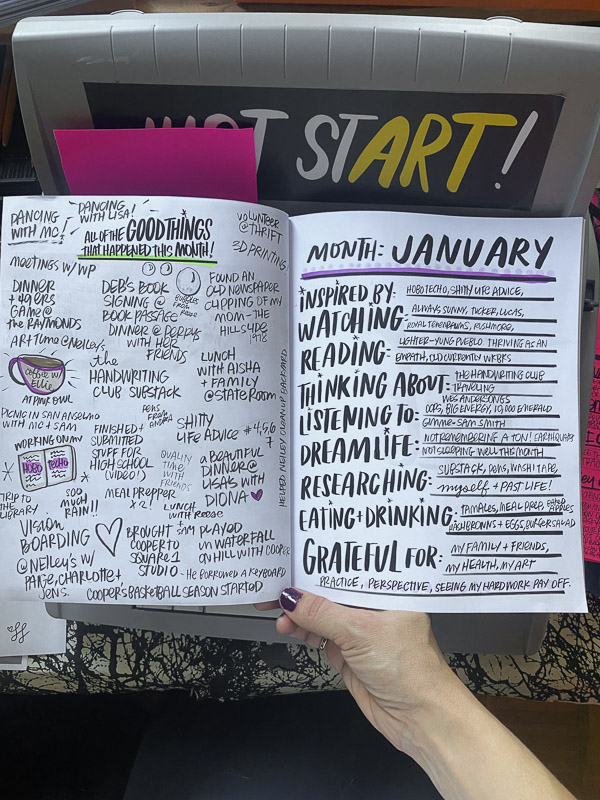 JUST START!
DANCING
WITH MC!
DANCING
WITH LISA!
ALL OF THE GOOD THINGS
THAT HAPPENED THIS MONTH!
VOLUNTEER
@THRIFT
3D PRINTING!
MEETINGS W/ WP
DINNER
+ 49ERS
GAME @
THE RAYMONDS
ART TIME @ NELLEY'S
DEB'S BOOK
SIGNING @
BOOK PASSAGE
DINNER @ POPPYS
WITH HER
FRIENDS
BUBBLES
FROM
FOUND AN
OLD NEWSPAPER
CLIPPING OF MY
MOM - THE
HILLSIDE
1975
COFFEE W/
ELLIE
AT PINK OWL
the
HANDWRITING
CLUB SUBSTACK
LUNCH
WITH AISHA
+ FAMILY
@STATE ROOM
PICNIC IN SAN ANSELMO
WITH MC + SAM
PENS
FROM
ANGELA
SHITTY
LIFE ADVICE #4,5,6
7
WORKING ON MY
HOBO TECHO
FINISHED +
SUBMITTED
STUFF FOR
HIGH SCHOOL
(VIDEO!)
QUALITY
TIME
WITH
FRIENDS
a BEAUTIFUL
DINNER @
LISA'S WITH
DIONA
HELPED NELLEY CLEAN UP BACKYARD
TRIP TO
THE
LIBRARY
SOO
MUCH
RAIN!!
MEAL PREPPER
X2!
LUNCH
WITH REESE
VISION
BOARDING
@ NELLEY'S W/
PAIGE, CHARLOTTE +
JEN S.
BROUGHT
COOPER TO
SQUARE 1
STUDIO
SAM PLAYED
IN WATERFALL
ON HILL WITH COOPER
- HE BORROWED A KEYBOARD
COOPER'S BASKETBALL SEASON STARTED
MONTH: JANUARY
INSPIRED BY: HOBO TECHO, SHITTY LIFE ADVICE,
WATCHING: ALWAYS SUNNY, TUCKER, LUCAS,
ROYAL TENENBAUMS, RUSHMORE,
READING: LIGHTER - YUNG PUEBLO. THRIVING AS AN
EMPATH, OLD CURRENTLY WKBKS
THINKING ABOUT: THE HANDWRITING CLUB
TRAVELING
LISTENING TO: WES ANDERSONGS
OOPS, BIG ENERGY, 10,000 EMERALD
GIMME - SAM SMITH
DREAM LIFE: NOT REMEMBERING A TON! EARTHQUAKE
NOT SLEEPING WELL THIS MONTH
RESEARCHING: SUBSTACK, PENS, WASHI TAPE,
myself + PAST LIFE!
EATING + DRINKING: TAMALES, MEAL PREP, BAKED APPLES
HASHBROWNS + EGGS, BUTTER SALAD
GRATEFUL FOR: MY FAMILY + FRIENDS,
MY HEALTH, MY ART
PRACTICE, PERSPECTIVE, SEEING MY HARD WORK PAY OFF.